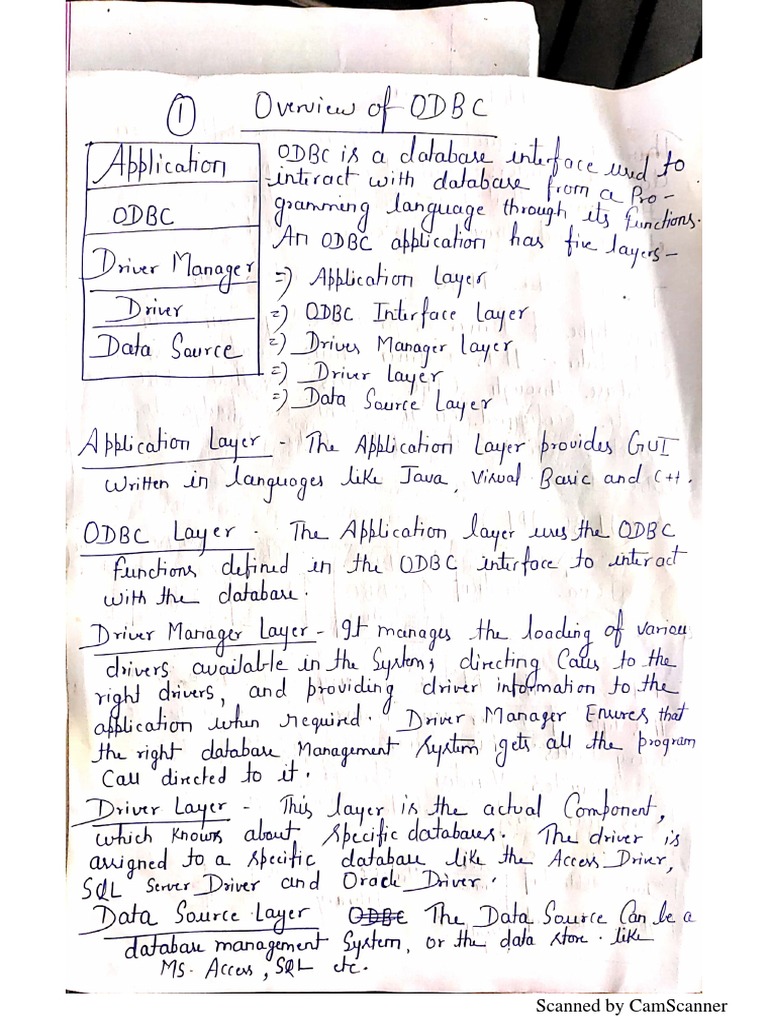 ① Overview of ODBC
Application
ODBC
Driver Manager
Driver
Data Source
ODBC is a database interface used to
interact with database from a Pro-
gramming language through its functions.
An ODBC application has five layers-
=) Application Layer
=) ODBC Interface Layer
=) Driver Manager Layer
=) Driver Layer
=) Data Source Layer
Application Layer - The Application Layer provides GUI
written in languages like Java, Visual Basic and C++.
ODBC Layer - The Application layer uses the ODBC
functions defined in the ODBC interface to interact
with the database.
Driver Manager Layer - It manages the loading of various
drivers available in the System, directing Calls to the
right drivers, and providing driver information to the
application when required. Driver Manager Ensures that
the right database Management System gets all the program
Call directed to it.
Driver Layer - This layer is the actual Component,
which knows about specific databases. The driver is
assigned to a specific database like the Access Driver,
SQL Server Driver and Oracle Driver.
Data Source Layer ODBC The Data Source Can be a
database management System, or the data store. like
Ms. Access, SQL etc.
Scanned by CamScanner